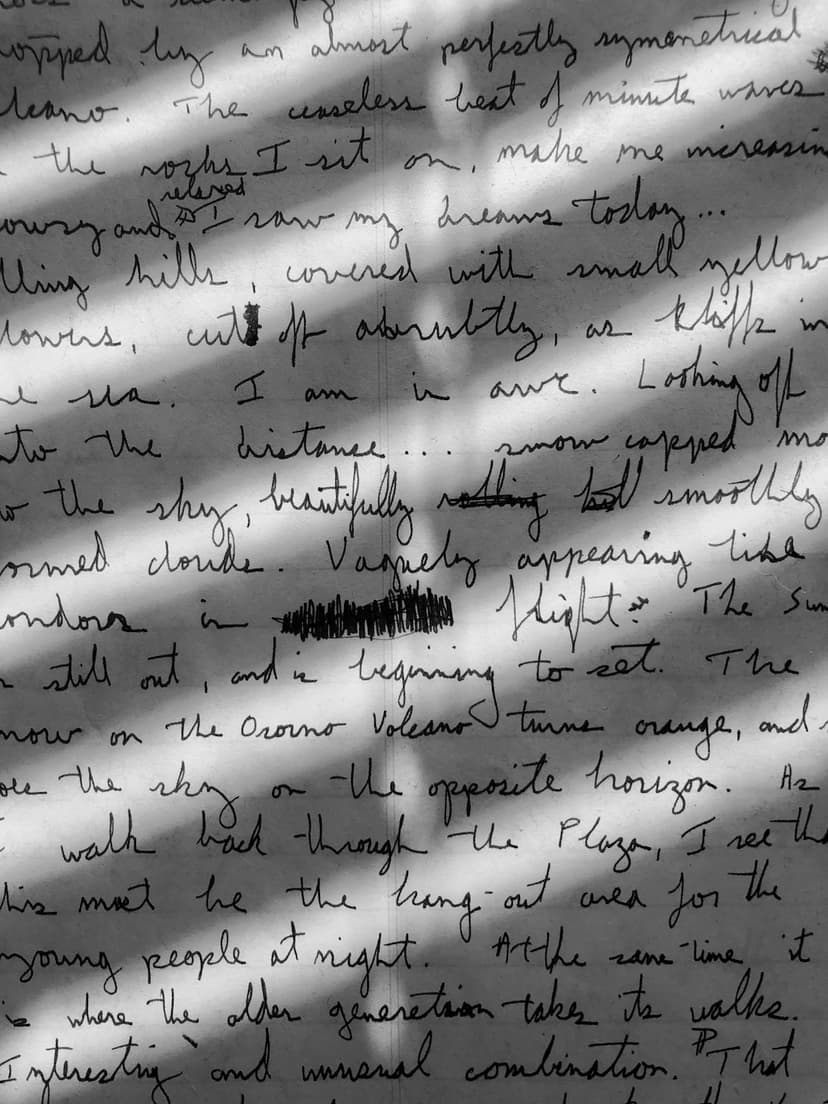 opped by an almost perfectly symmetrical
lcano. The ceaseless beat of minute waves
the rocks I sit on, make me increasin
relaxed
owsy and I saw my dreams today...
lling hills, covered with small yellow
lowers, cut off abrubtly, as kliffs in
he sea. I am in awe. Looking off
nto the distance... snow capped mo
o the sky, beautifully rolling smoothly
ormed clouds. Vaguely appearing like
ondors in flight. The sun
still out, and is beginning to set. The
now on the Osorno Volcano turns orange, and s
oes the sky on the opposite horizon. As
I walk back through the Plaza, I see tha
this must be the hang-out area for the
young people at night. At the same time it
is where the older generation takes its walks.
Interesting and unusual combination. That